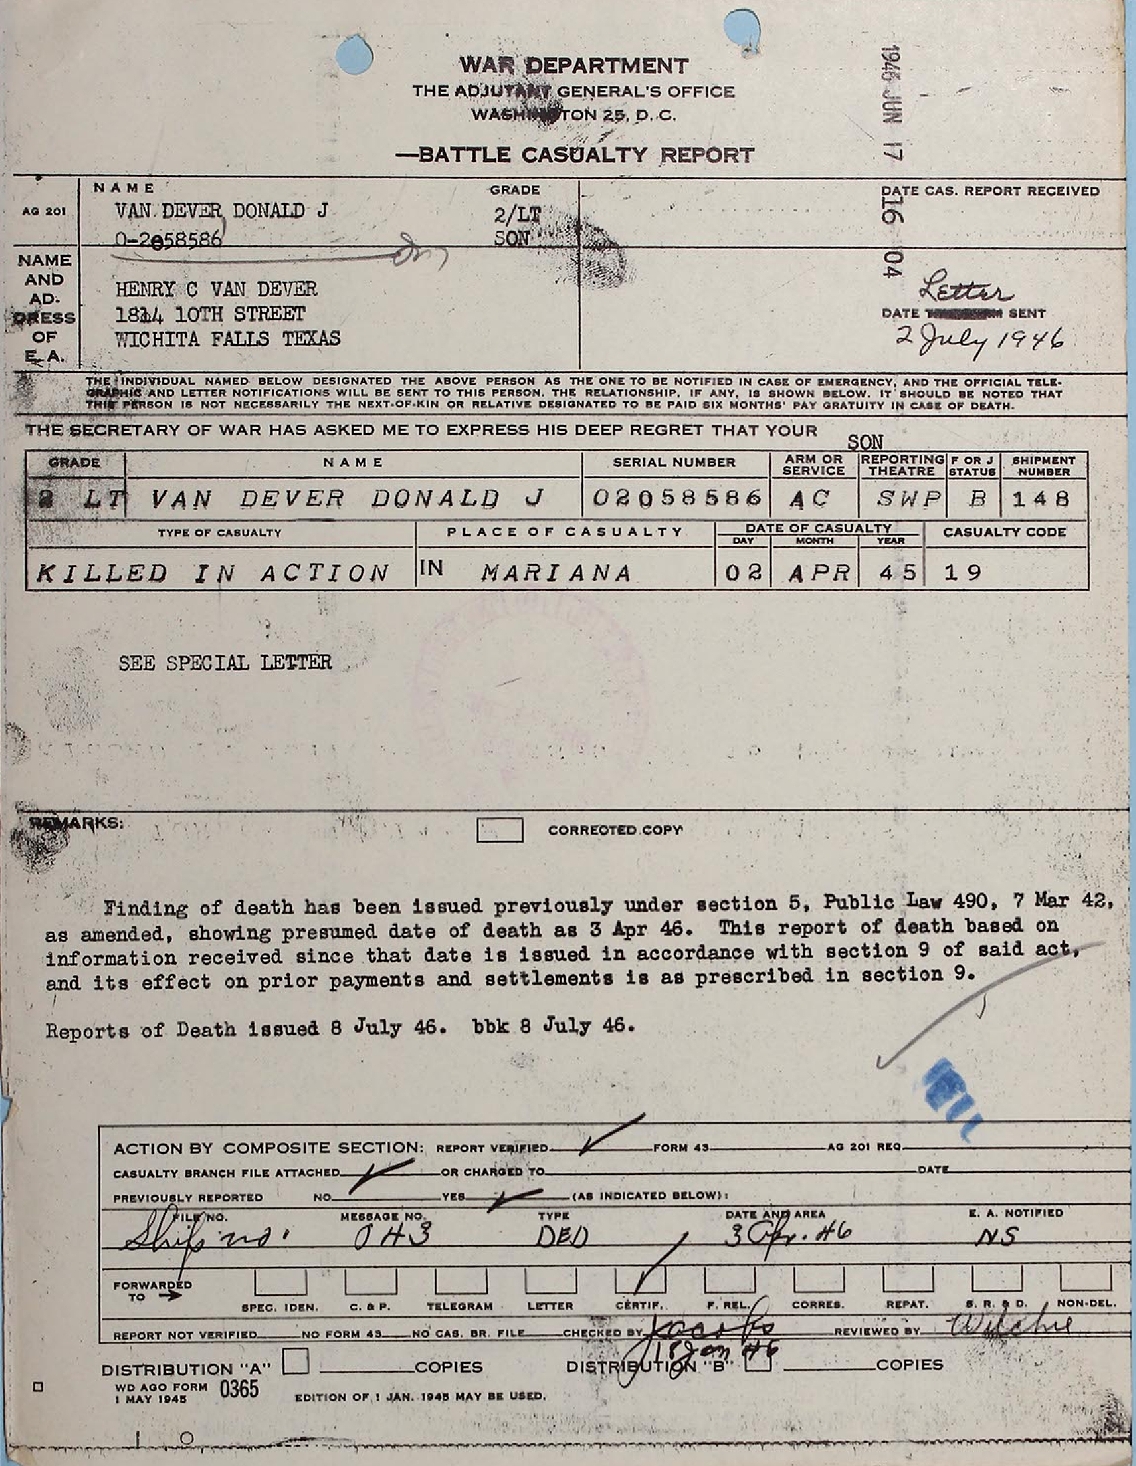 WAR DEPARTMENT
THE ADJUTANT GENERAL'S OFFICE
WASHINGTON 25, D. C.
—BATTLE CASUALTY REPORT
1946 JUN 17 16 04
AG 201
NAME
VAN DEVER DONALD J
O-2058586
GRADE
2/LT
SON
DATE CAS. REPORT RECEIVED
NAME AND ADDRESS OF E. A.
HENRY C VAN DEVER
1814 10TH STREET
WICHITA FALLS TEXAS
Letter
DATE SENT
2 July 1946
THE INDIVIDUAL NAMED BELOW DESIGNATED THE ABOVE PERSON AS THE ONE TO BE NOTIFIED IN CASE OF EMERGENCY, AND THE OFFICIAL TELE-
GRAPHIC AND LETTER NOTIFICATIONS WILL BE SENT TO THIS PERSON. THE RELATIONSHIP, IF ANY, IS SHOWN BELOW. IT SHOULD BE NOTED THAT
THIS PERSON IS NOT NECESSARILY THE NEXT-OF-KIN OR RELATIVE DESIGNATED TO BE PAID SIX MONTHS' PAY GRATUITY IN CASE OF DEATH.
THE SECRETARY OF WAR HAS ASKED ME TO EXPRESS HIS DEEP REGRET THAT YOUR SON
GRADE NAME SERIAL NUMBER ARM OR SERVICE REPORTING THEATRE F OR J STATUS SHIPMENT NUMBER
2 LT VAN DEVER DONALD J 02058586 AC SWP B 148
TYPE OF CASUALTY PLACE OF CASUALTY DATE OF CASUALTY CASUALTY CODE
DAY MONTH YEAR
KILLED IN ACTION IN MARIANA 02 APR 45 19
SEE SPECIAL LETTER
REMARKS:
CORRECTED COPY
Finding of death has been issued previously under section 5, Public Law 490, 7 Mar 42,
as amended, showing presumed date of death as 3 Apr 46. This report of death based on
information received since that date is issued in accordance with section 9 of said act,
and its effect on prior payments and settlements is as prescribed in section 9.
Reports of Death issued 8 July 46. bbk 8 July 46.
ACTION BY COMPOSITE SECTION: REPORT VERIFIED FORM 43 AG 201 REQ.
CASUALTY BRANCH FILE ATTACHED OR CHARGED TO DATE
PREVIOUSLY REPORTED NO YES (AS INDICATED BELOW):
FILE NO. MESSAGE NO. TYPE DATE AND AREA E. A. NOTIFIED
Ship no. 043 DED 3 Apr. 46 NS
FORWARDED TO →
SPEC. IDEN. C. & P. TELEGRAM LETTER CERTIF. F. REL. CORRES. REPAT. S. R. & D. NON-DEL.
REPORT NOT VERIFIED NO FORM 43 NO CAS. BR. FILE CHECKED BY Jacobs REVIEWED BY
DISTRIBUTION "A" COPIES DISTRIBUTION "B" COPIES
WD AGO FORM 0365
1 MAY 1945
EDITION OF 1 JAN. 1945 MAY BE USED.